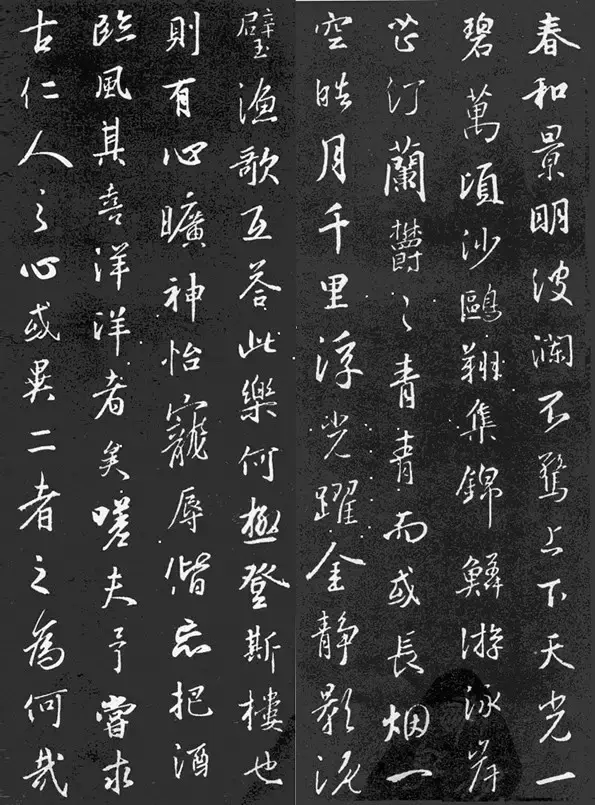 春和景明波瀾不驚上下天光一
碧萬頃沙鷗翔集錦鱗游泳岸
芷汀蘭鬱々青青而或長烟一
空皓月千里浮光躍金静影沉
璧漁歌互荅此樂何極登斯樓也
則有心曠神怡寵辱偕忘把酒
臨風其喜洋洋者矣嗟夫予嘗求
古仁人之心或異二者之為何哉